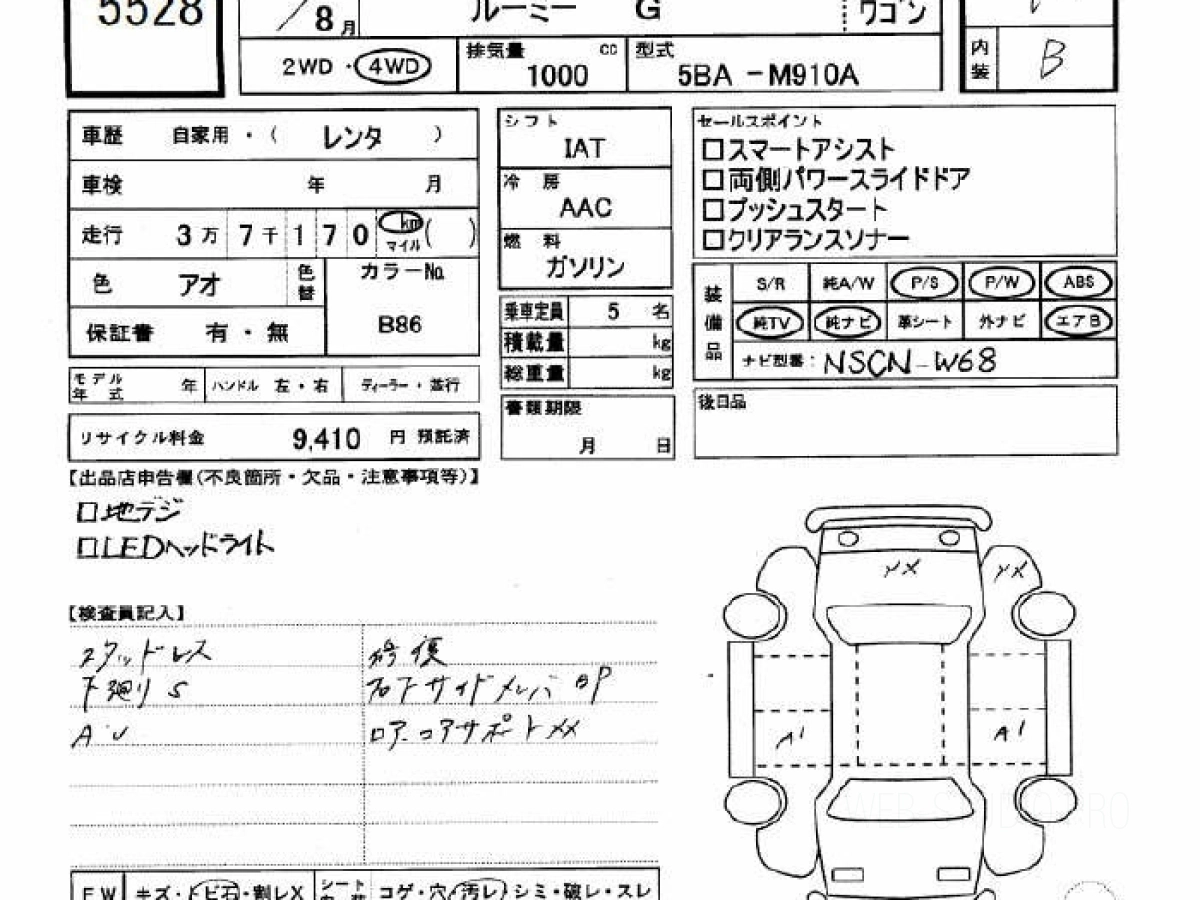 5528
8月 ルーミー G ワゴン
2WD・4WD 排気量 cc 1000 型式 5BA -M910A 内装 B
車歴 自家用・( レンタ )
車検 年 月
走行 3万 7千 1 7 0 km マイル ( )
色 アオ 色替 カラーNo. B86
保証書 有・無
シフト IAT
冷房 AAC
燃料 ガソリン
セールスポイント
□スマートアシスト
□両側パワースライドドア
□プッシュスタート
□クリアランスソナー
乗車定員 5 名
積載量 kg
総重量 kg
装備品 S/R 純A/W P/S P/W ABS
純TV 純ナビ 革シート 外ナビ エアB
ナビ型番: NSCN-W68
モデル年式 年 ハンドル 左・右 ディーラー・並行
書類期限 月 日
後日品
リサイクル料金 9,410 円 預託済
【出品店申告欄(不良箇所・欠品・注意事項等)】
□地デジ
□LEDヘッドライト
【検査員記入】
スタッドレス 修復
下廻りS 右下サイドメンバBP
A・U ロア.コアサポートXX
YX YX
A1 A1
WEB STUDIO PRO
FW キズ・トビ石・割レX シート コゲ・穴・汚レ・シミ・破レ・スレ